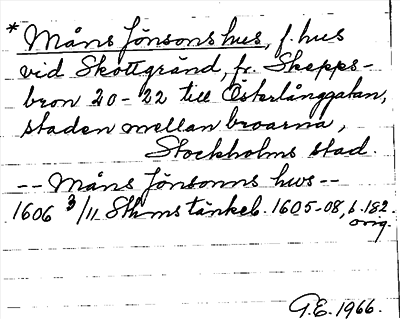 * Måns Jönsons hus, f. hus
vid Skottgränd, fr. Skepps-
bron 20-22 till Österlånggatan,
staden mellan broarna,
Stockholms stad.
-- Måns Jönsonns hws --
1606 3/11 Sthms tänkeb. 1605-08, b. 182.
orig.
G.E. 1966.